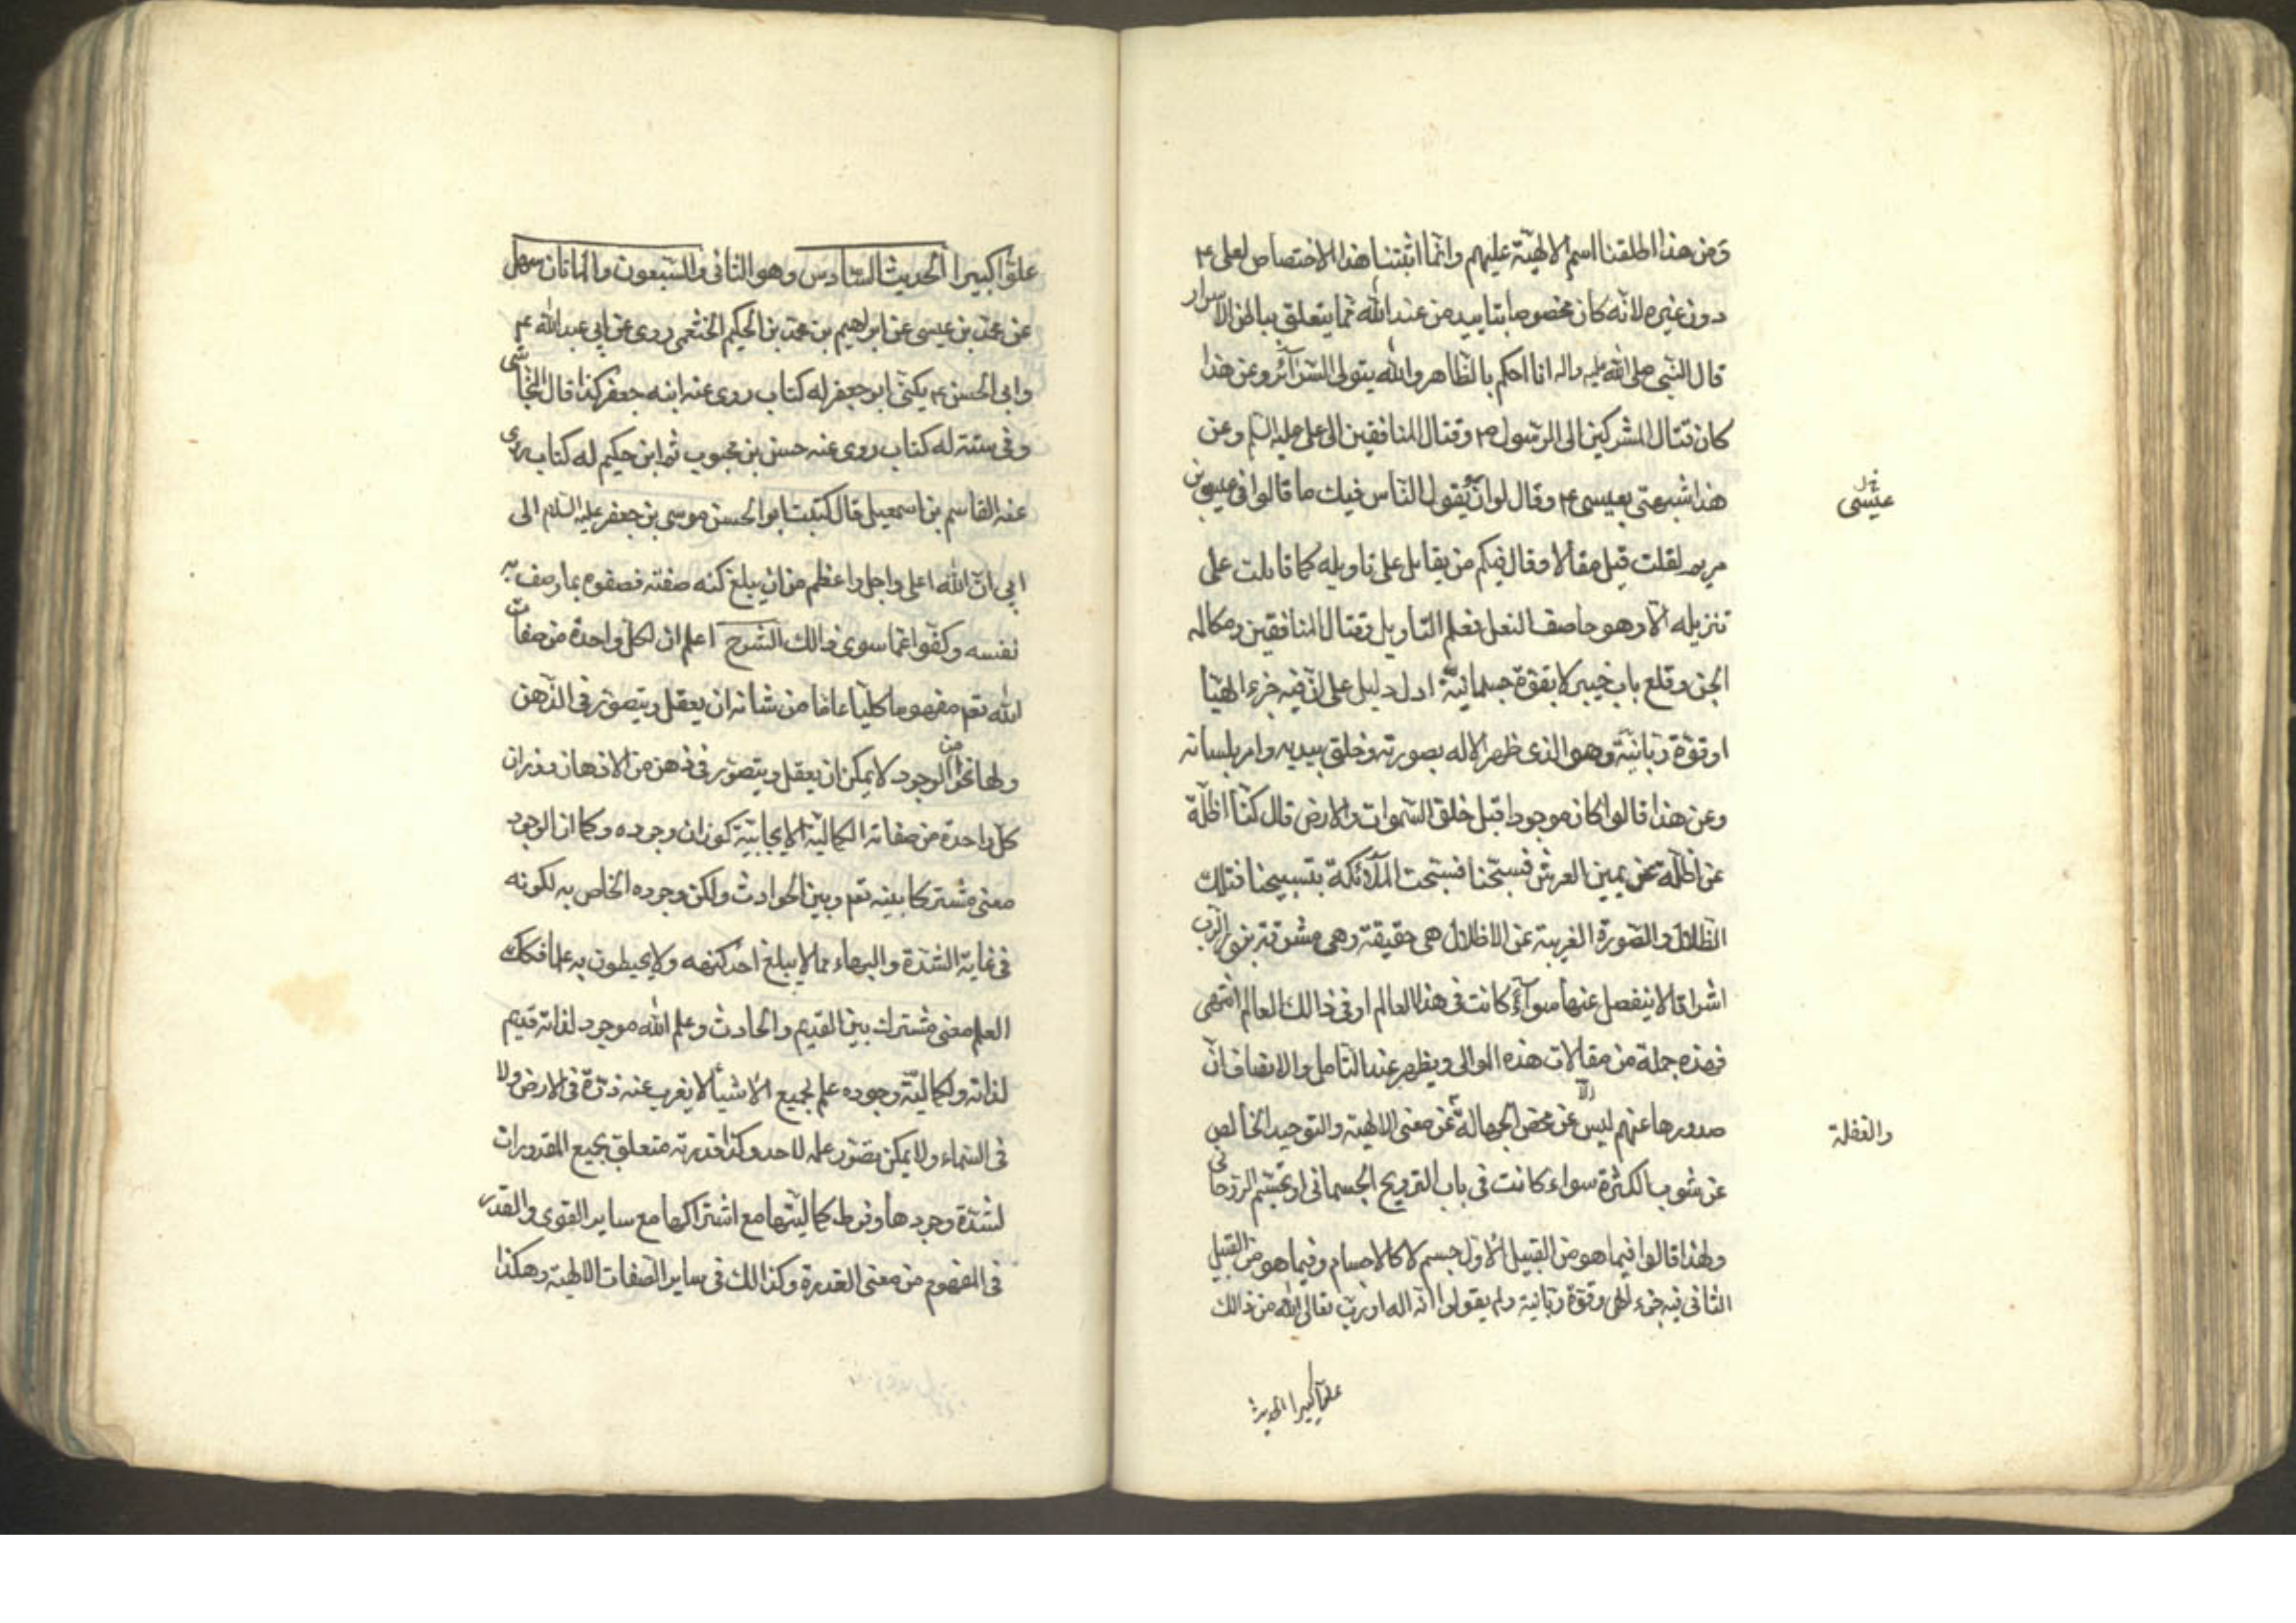 ومن هذا اطلقنا اسم الالهيّة عليهم وانّما اثبتنا هذا الاختصاص لعلى ع
دون غيره لانّه كان مخصوصا بتاييد من عند اللّه ممّا يتعلّق بباطن الاسرار
قال النّبى صلى اللّه عليه واله انا احكم بالظّاهر واللّه يتولى السّرآئر وعن هذا
كان قتال المشركين الى الرّسول ص وقتال المنافقين الى على عليه السّلم وعن
هذا شبهتى بعيسى ع وقال لو ان يقول النّاس فيك ما قالوا فى عيسى بن
عيسى
مريم لقلت قيل مقالا وقال فيكم من يقاتل على تاويله كما قاتلت على
تنزيله الا وهو خاصف النعل فعلم التّاويل وقتال المنافقين ومكالمه
الجن وقلع باب خيبر لا بقوّة جسمانيّة ادل دليل على انّ فيه جزءا الهيّا
او قوّة ربّانيّة وهو الذى ظهر الاله بصورته وخلق بيديه وامر بلسانه
وعن هذا قالوا كان موجودا قبل خلق السّموات والارض قال كنّا اظلّة
عن اظلّة عن يمين العرش فسبّحنا فسبّحت الملآئكة بتسبيحنا فتلك
الظّلال والصّورة الغريبة عن الاظلال هى حقيقة وهى مشرقة بنور الرّب
اشراقا لا ينفصل عنها سوآء كانت فى هذا العالم او فى ذالك العالم انتهى
فهذه جملة من مقالات هذه الموالى ويظهر عند التّامل والانصاف انّ
صدورها عنهم ليس الّا عن محض الجهالة عن معنى الالهيّة والتوحيد الخالص
والغفلة
عن شوب الكثرة سواء كانت فى باب الترويح الجسمانى او تجسّم الرّوحانى
ولهذا قالوا فيما هو من القبيل الاوّل جسم لا كالاجسام وفيما هو من القبيل
الثانى فيه جزء الهى وقوّة ربّانيّة ولم يقولوا انّه اله او ربّ تعالى اللّه من ذالك
علوّا كبيرا الحديث
علوّا كبيرا الحديث السّادس وهو الثانى والسّبعون والماتان سهل
عن محمّد بن عيسى عن ابراهيم بن محمّد بن الحكيم الخثعمى روى عن ابى عبد اللّه ع
وابى الحسن ع يكنّى ابو جعفر له كتاب روى عنه ابنه جعفر كذا قال النّجاشى
وفى سته له كتاب روى عنه حسن بن محبوب ثم ابن حكيم له كتاب روى
عنه القاسم بن اسمعيل قال كتبت ابو الحسن موسى بن جعفر عليه السّلام الى
ابى انّ اللّه اعلى واجل واعظم من ان يبلغ كنه صفته فصفوه بما وصف به
نفسه وكفّوا عمّا سوى ذالك الشّرح اعلم ان لكلّ واحدة من صفات
اللّه تعم مفهوما كليّا عامّا من شانه ان يعقل ويتصوّر فى الذّهن
ولها نحوا من الوجود لا يمكن ان يعقل ويتصوّر فى ذهن من الاذهان ووزان
كلّ واحدة من صفاته الكماليّة الايجابيّة كوزان وجوده وكما ان الوجود
معنى مشتركا بينه تعم وبين الحوادث ولكن وجوده الخاص به لكونه
فى غاية الشدّة والبهاء مما لا يبلغ احد كنهه ولا يحيطون به علما فكك
العلم معنى مشترك بين القديم والحادث وعلم اللّه موجود لذاته قديم
لذاته ولكماليّة وجوده علم بجميع الاشيآ لا يعزب عنه ذرّة فى الارض ولا
فى السّماء ولا يمكن تصوّر علمه لاحد وكذا قدرته متعلّق بجميع المقدورات
لشدّة وجودها وفرط كماليّتها مع اشتراكها مع ساير القوى والقدر
فى المفهوم من معنى القدرة وكذالك فى ساير الصّفات الالهيّة وهكذا